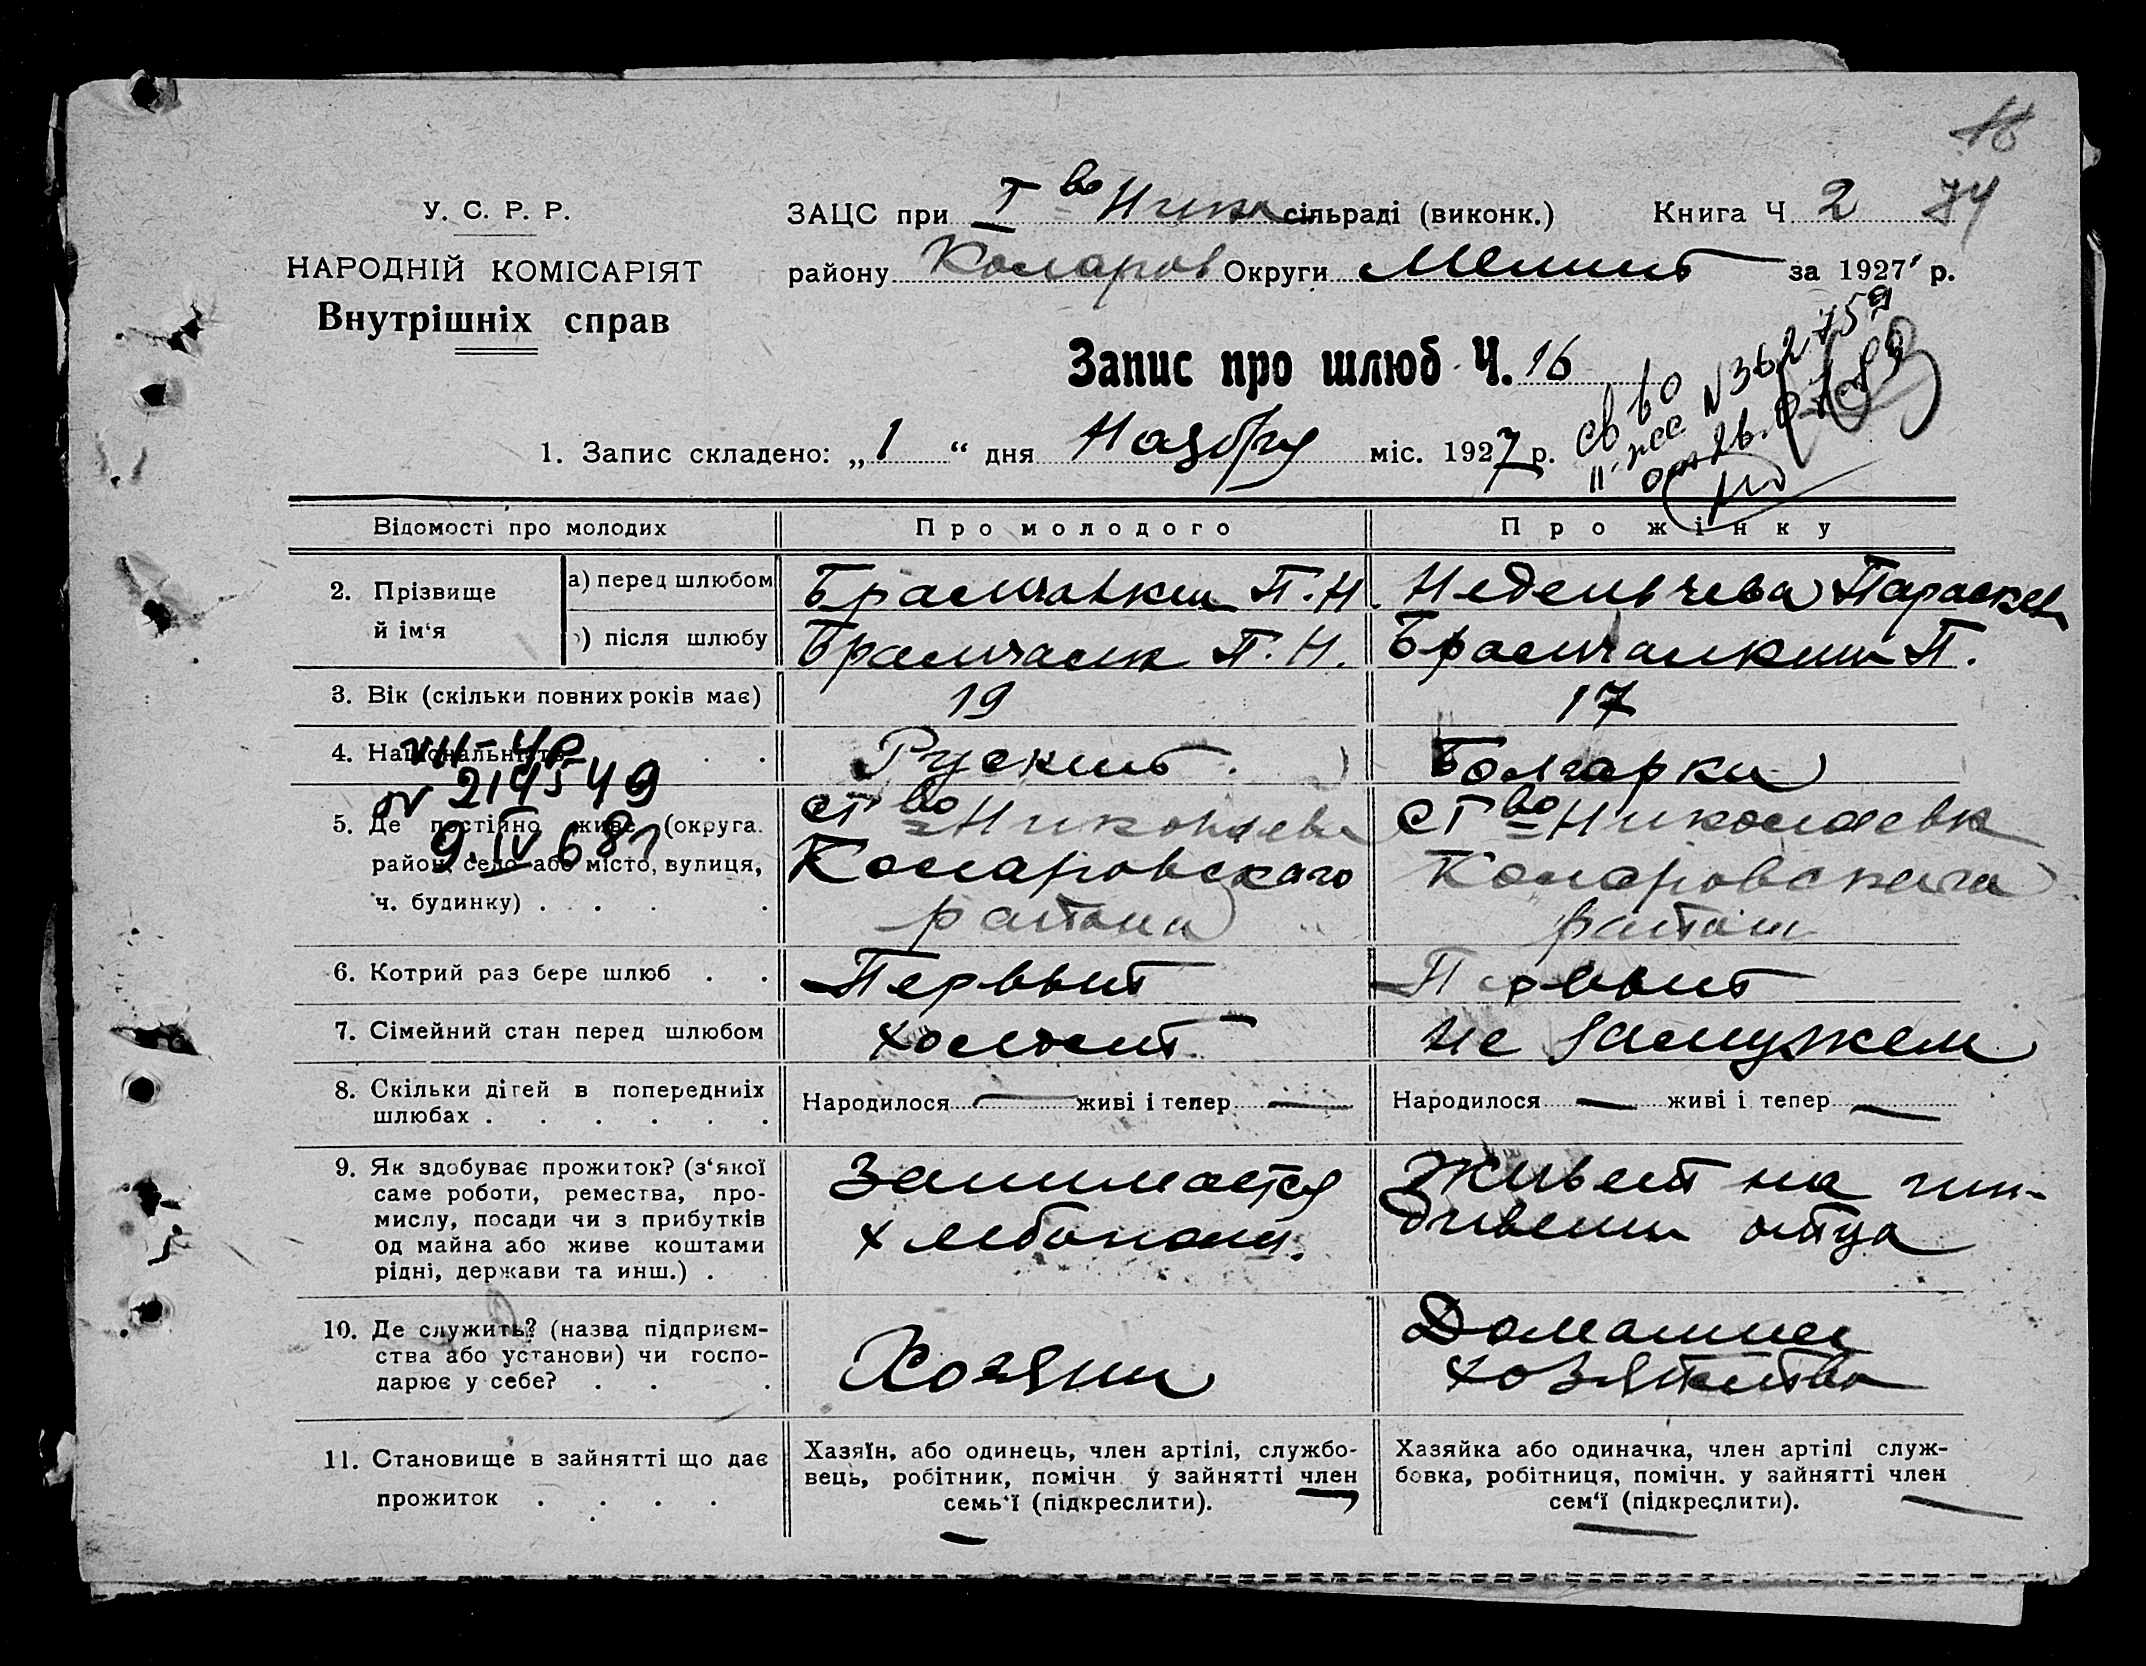 18
У. С. Р. Р.
НАРОДНІЙ КОМІСАРІЯТ
Внутрішніх справ
ЗАЦС при Iво Нико сільраді (виконк.) Книга Ч. 2 74
району Коларов Округи Мелит за 1927 р.
Запис про шлюб Ч. 16
1. Запис складено: „1“ дня Наября міс. 1927 р.
Відомості про молодих Про молодого Про жінку
2. Прізвище й ім‘я
а) перед шлюбом П.Н. Недельчева Параскев
б) після шлюбу П.Н. П.
3. Вік (скільки повних років має) 19 17
4. Національність Руский Болгарка
VII-ЖР
№ 214549
9.IV 68 г.
5. Де постійно живе (округа.
район, село або місто, вулиця,
ч. будинку)
с Iво Николаевк
Коларовскаго
района
с Iво Николаевк
Коларовскага
района
6. Котрий раз бере шлюб Первый Первый
7. Сімейний стан перед шлюбом холост не замужем
8. Скільки дітей в попередниіх
шлюбах
Народилося — живі і тепер —
Народилося — живі і тепер —
9. Як здобуває прожиток? (з‘якої
саме роботи, ремества, про-
мислу, посади чи з прибутків
од майна або живе коштами
рідні, держави та инш.)
Занимается
хлебопаш.
Живет на иж-
дивении отца
10. Де служить? (назва підприєм-
ства або установи) чи госпо-
дарює у себе?
Хозяин
Домашнее
хозяйство
11. Становище в зайнятті що дає
прожиток
Хазяїн, або одинець, член артілі, службо-
вець, робітник, помічн у зайнятті член
семь‘ї (підкреслити).
Хазяйка або одиначка, член артілі служ-
бовка, робітниця, помічн. у зайнятті член
сем‘ї (підкреслити).